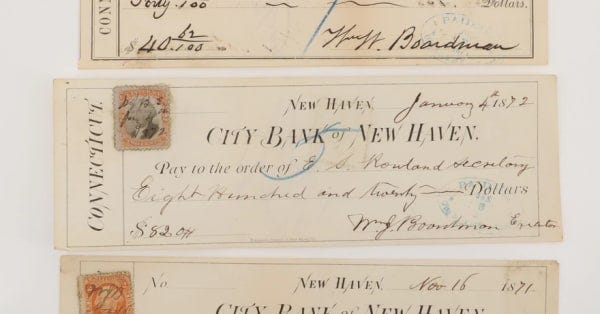 Forty .100 Dollars.
$40 62/100 Wm W Boardman
CONNECTICUT.
NEW HAVEN, January 4th 1872
CITY BANK OF NEW HAVEN.
Pay to the order of E. S. Rowland Secretary
Eight Hundred and twenty Dollars
$820 Wm J. Boardman
No. NEW HAVEN, Nov 16 1871.
CITY BANK OF NEW HAVEN.